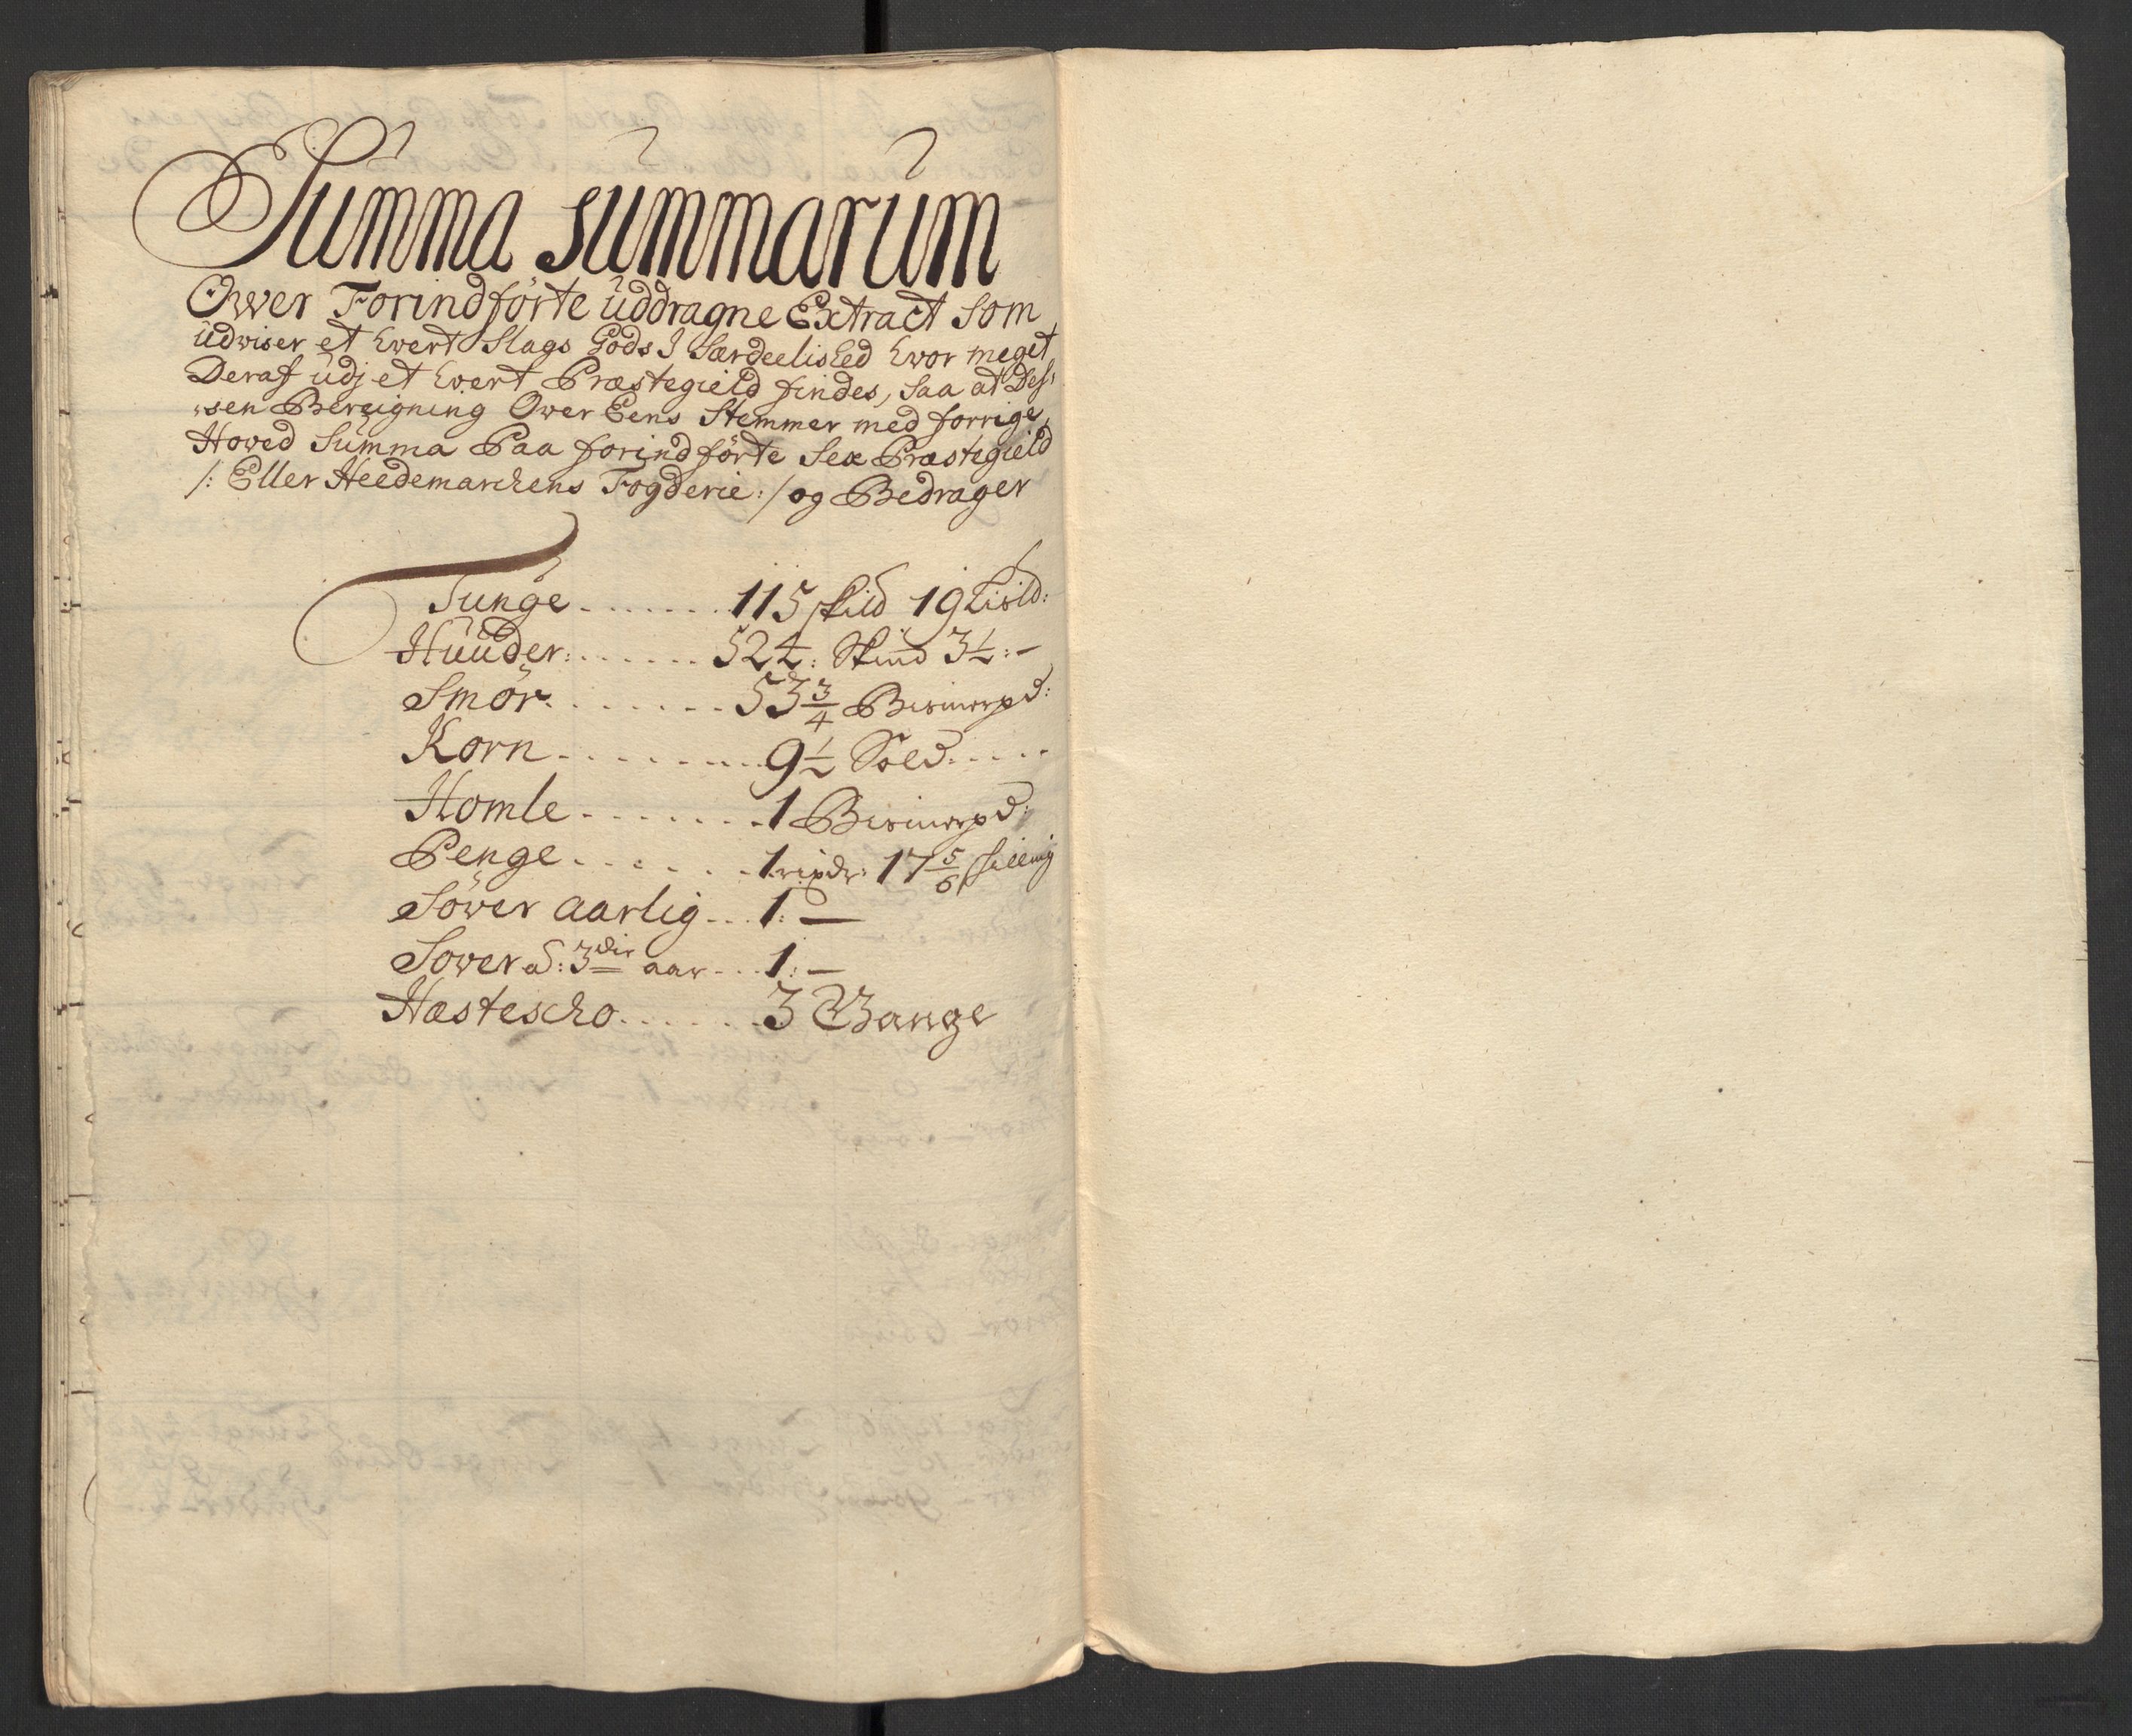 Summa summarum
Ower Forindförte üddragne Extract som
üdwiser et hvert Slags Gods I Særdeelished hvor meget
Deraf üdj et hvert Præstegield findes, saa at Des¸
"sen Bereigning Ower Eens Stemmer med forrige
Hoved Summa Paa forindförte Sex Præstegield
/: Eller Heedemarchens Fogderie :/ og Bedrager
Tunge ....... 115 skild 19 Lisld:
Huuder: ....... 524: Skind 3½: -
Smör ....... 53 3/4 Bismerpd:
Korn ....... 9½ Sold .....
Homle ....... 1 Bismerpd:
Penge ....... 1 rixdr: 17 5/6 skilling
Söwer aarlig ... 1: —
Sower d: 3die aar ... 1: —
Hæstescho ...... 3 Gange